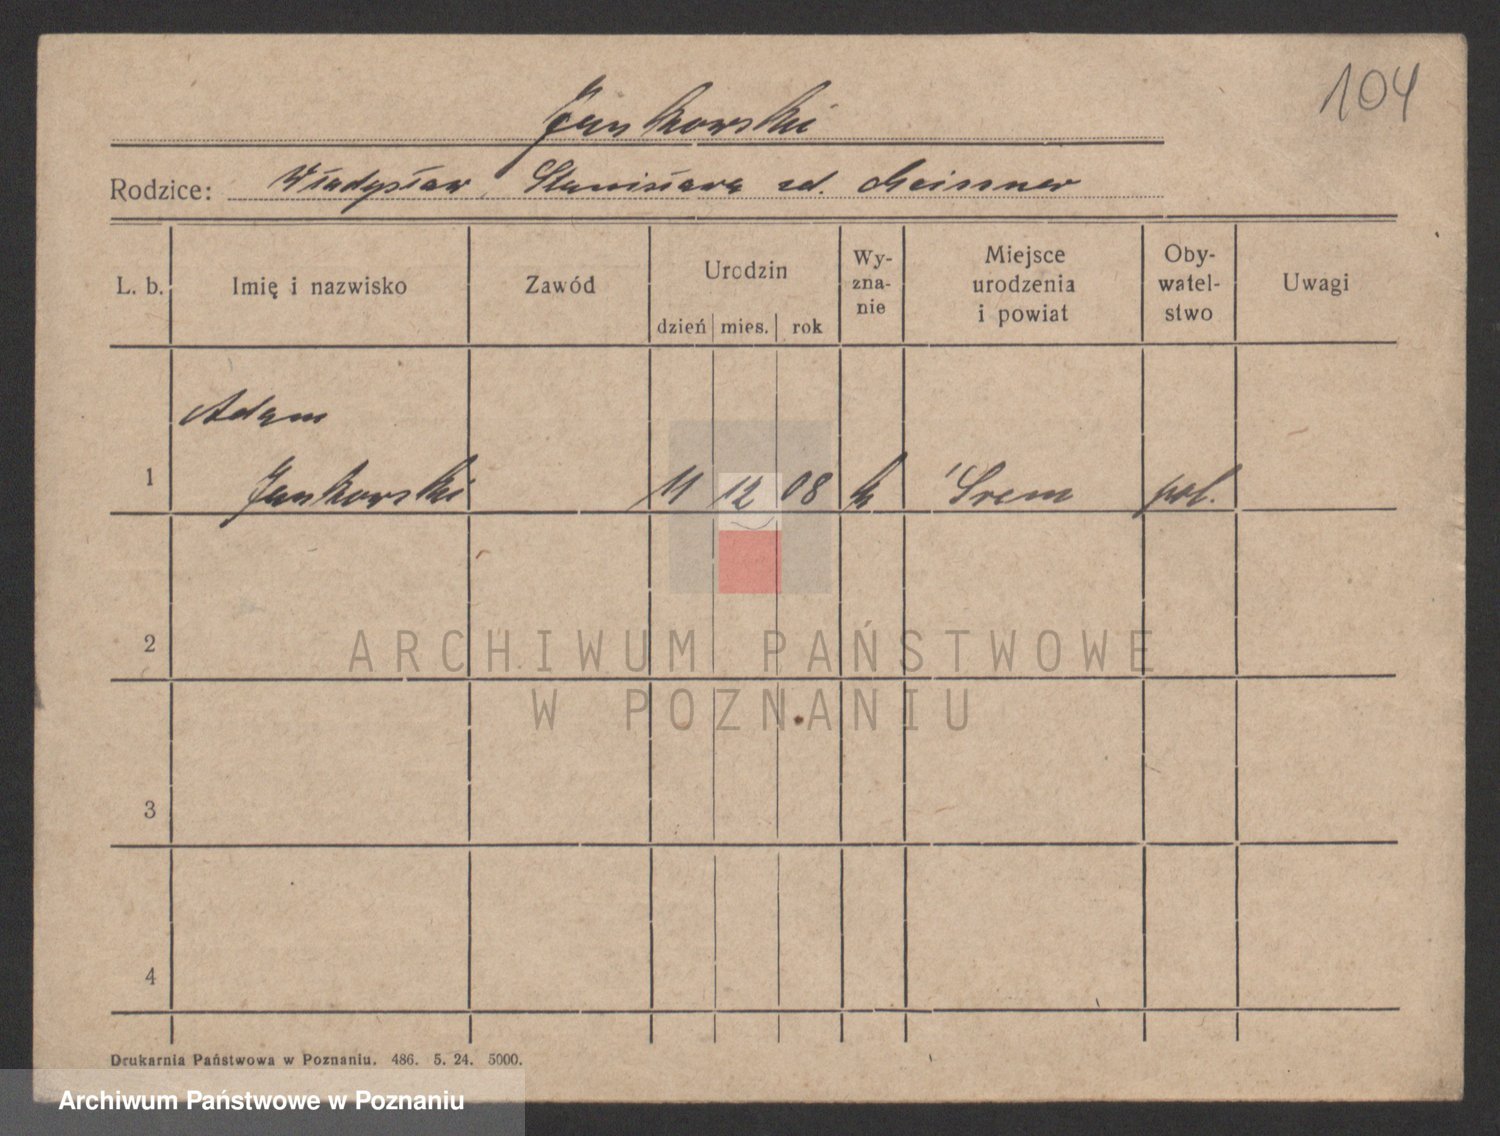 104
Jankowski
Rodzice: Władysław, Stanisława zd. Meissner
L. b. Imię i nazwisko Zawód Urodzin Wy-zna-nie Miejsce urodzenia i powiat Oby-watel-stwo Uwagi
dzień mies. rok
Adam
1 Jankowski 11 12 08 k Śrem pol.
2
ARCHIWUM PAŃSTWOWE
W POZNANIU
3
4
Drukarnia Państwowa w Poznaniu. 486. 5. 24. 5000.
Archiwum Państwowe w Poznaniu